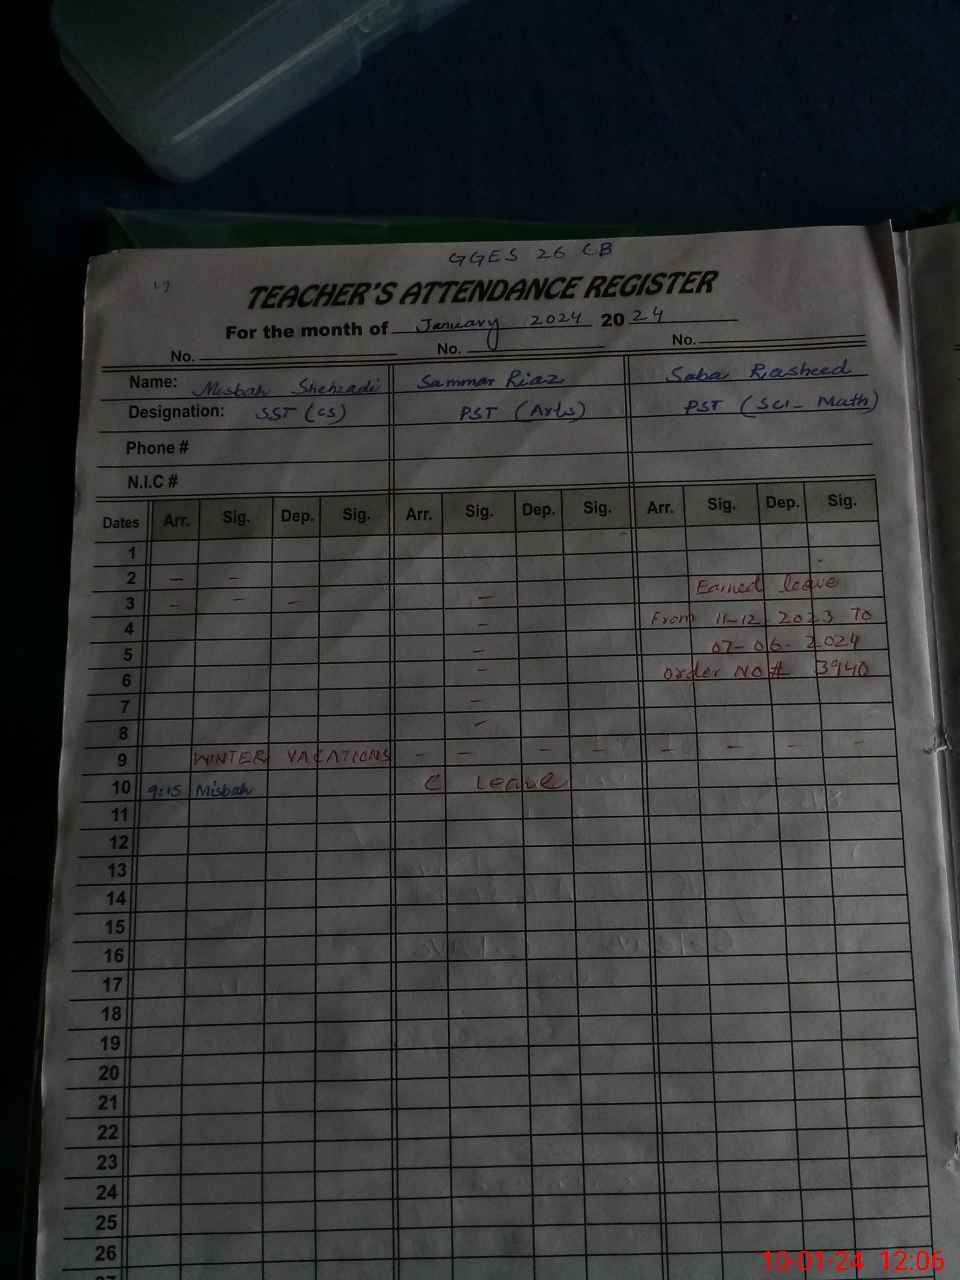 GGES 26 CB
TEACHER'S ATTENDANCE REGISTER
For the month of January 2024 20 24
No. No. No.
Name: Misbah Shehzadi Sammar Riaz Saba Rasheed
Designation: SST (CS) PST (Arts) PST (Sci- Math)
Phone #
N.I.C #
Dates Arr. Sig. Dep. Sig. Arr. Sig. Dep. Sig. Arr. Sig. Dep. Sig.
1
2 - - Earned leave
3 - - - -
4 - From 11-12 2023 To
5 - 07-06-2024
6 - order NO# 3940
7 -
8 -
9 WINTER VACATIONS - - - - - - - -
10 9:15 Misbah C Leave
11
12
13
14
15
16
17
18
19
20
21
22
23
24
25
26
10-01-24 12:06